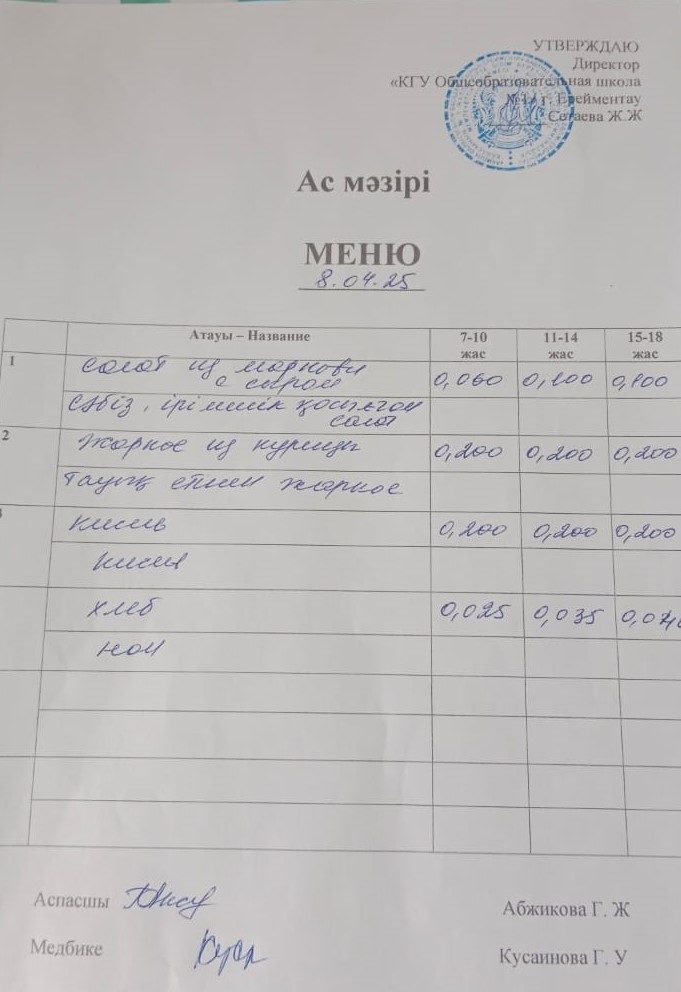 УТВЕРЖДАЮ
Директор
«КГУ Общеобразовательная школа
№1» г. Ерейментау
Сетаева Ж.Ж
Ас мәзірі
МЕНЮ
8.04.25
Атауы – Название 7-10 жас 11-14 жас 15-18 жас
1 Салат из моркови 0,060 0,100 0,100
с сыром
Сәбіз, ірімшік қосылған
салат
2 Жаркое из курицы 0,200 0,200 0,200
Тауық етінен жаркое
Кисель 0,200 0,200 0,200
Кисел
хлеб 0,025 0,035 0,040
нан
Аспасшы Абжикова Г. Ж
Медбике Кусаинова Г. У